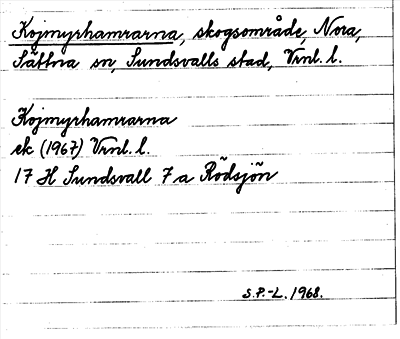 Kojmyrhamrarna, skogsområde, Nora,
Sättna sn, Sundsvalls stad, Vrnl. l.
Kojmyrhamrarna
ek (1967) Vrnl. l.
17 H Sundsvall 7 a Rödsjön
S.P.-L. 1968.